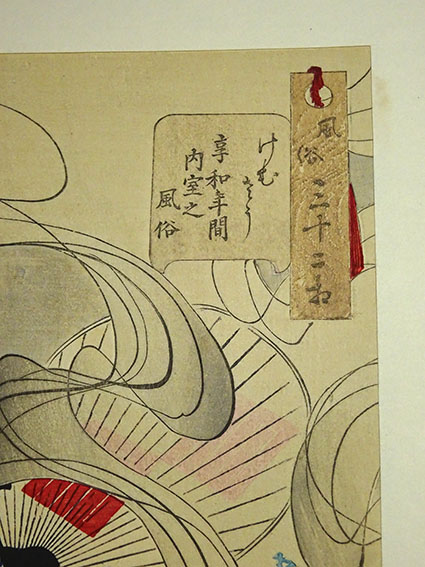 風俗三十二相
けむさう
享和年間
内室之
風俗